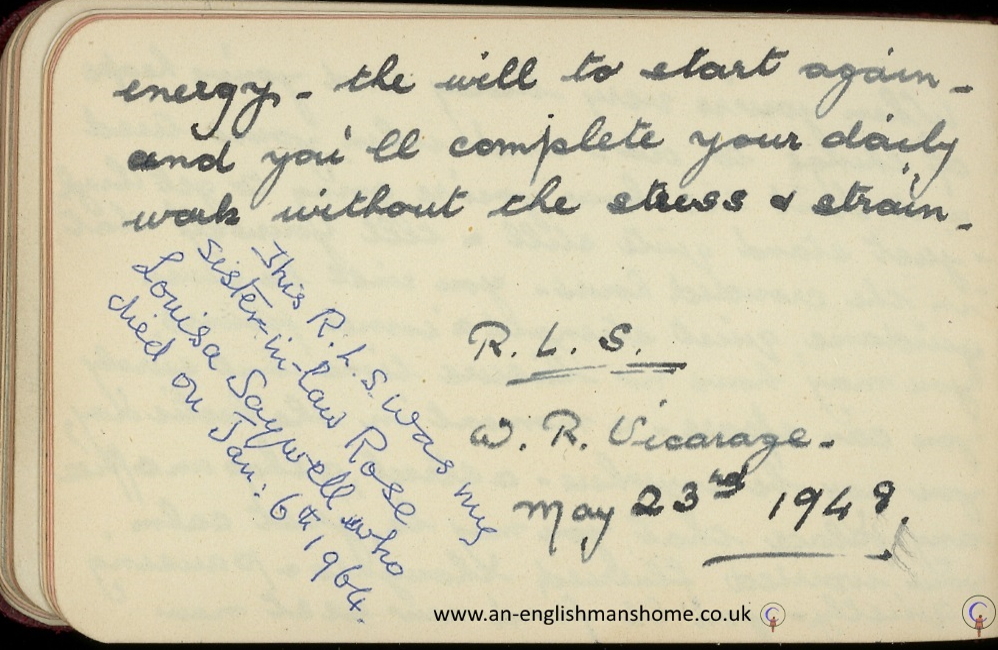 energy, - the will to start again -
and you'll complete your daily
work without the stress & strain.
This R. L. S. was my
sister-in-law Rose
Louisa Saywell who
died on Jan: 6th 1964.
R. L. S.
W. R. Vicarage -
May 23rd 1948.
www.an-englishmanshome.co.uk